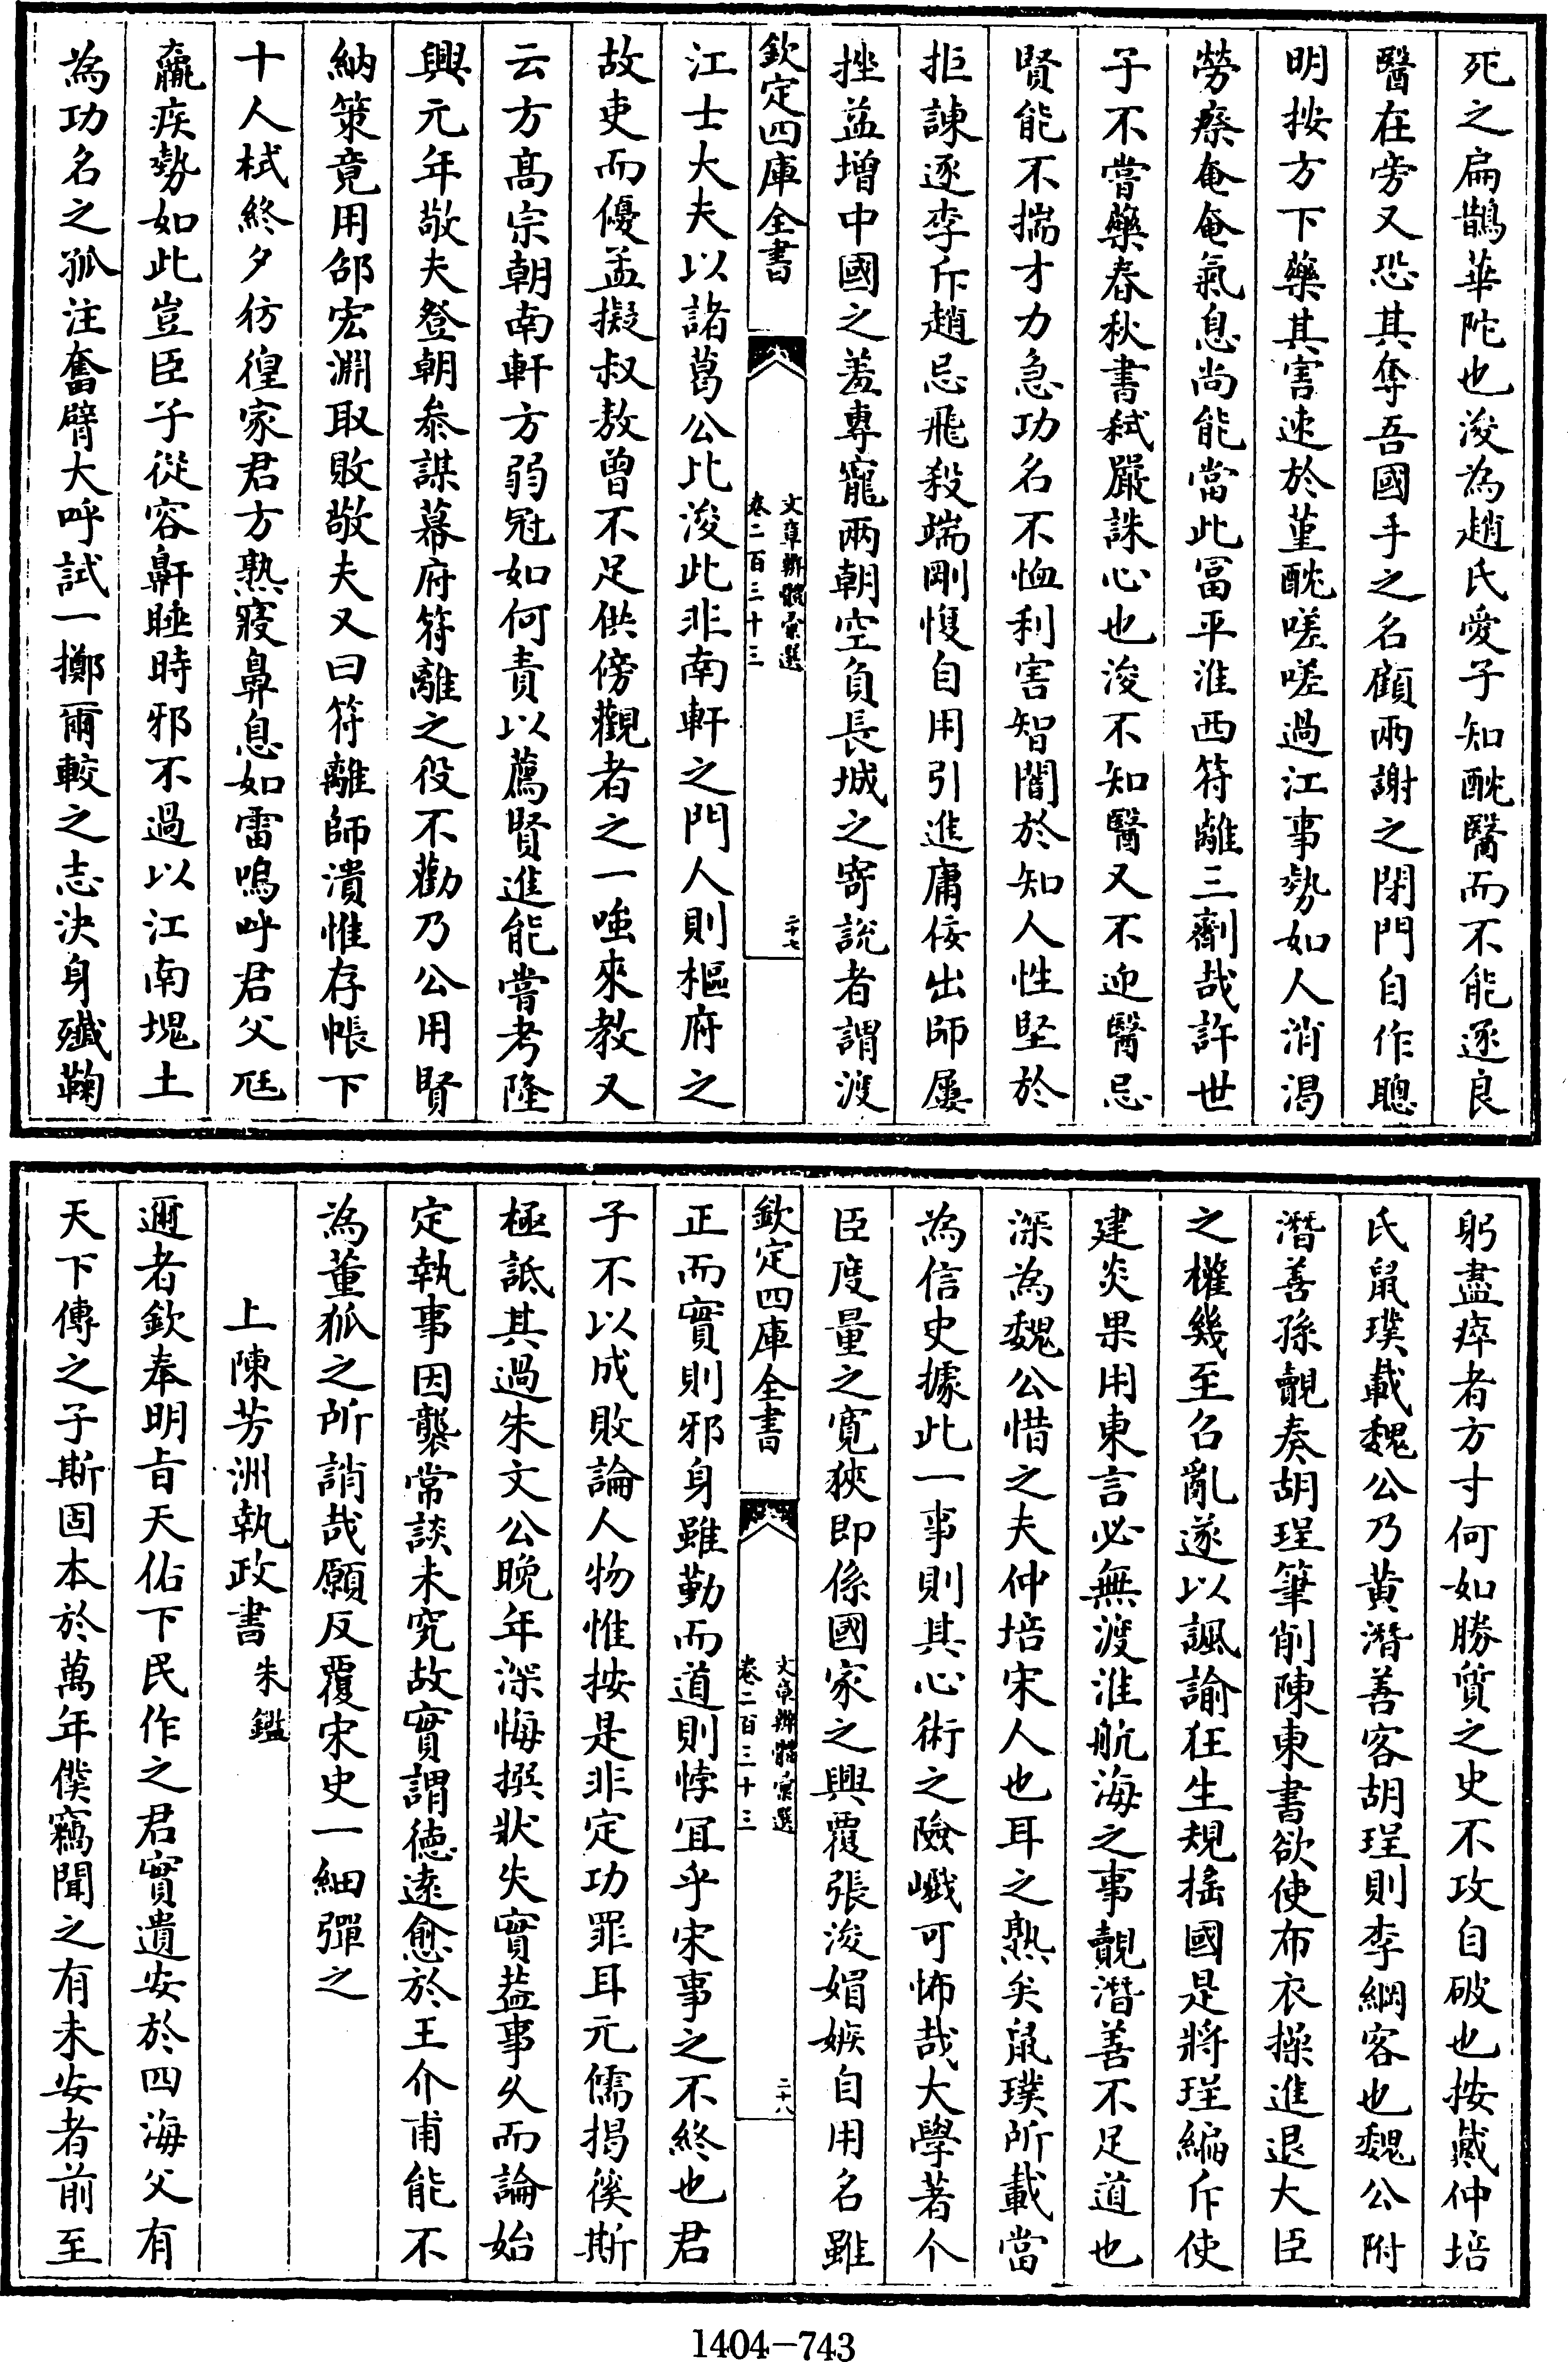 死之扁鵲華陀也浚為趙氏愛子知酖醫而不能逐良
醫在旁又恐其奪吾國手之名顧兩謝之閉門自作聰
明按方下藥其害速於菫酖嗟嗟過江事勢如人消渴
勞瘵奄奄氣息尚能當此冨平淮西符離三劑哉許世
子不嘗藥春秋書弑嚴誅心也浚不知醫又不迎醫忌
賢能不揣才力急功名不恤利害智闇於知人性堅於
拒諫逐李斥趙忌飛殺端剛愎自用引進庸佞出師屢
挫益增中國之羞專寵兩朝空負長城之寄說者謂渡
欽定四庫全書
文章辨體彙選
卷二百三十三
二十七
江士大夫以諸葛公比浚此非南軒之門人則樞府之
故吏而優孟擬叔敖曾不足供傍觀者之一嗤來教又
云方髙宗朝南軒方弱冠如何責以薦賢進能嘗考隆
興元年敬夫登朝叅謀幕府符離之役不勸乃公用賢
納策竟用邵宏淵取敗敬夫又曰符離師潰惟存帳下
十人栻終夕彷徨家君方熟寢鼻息如雷嗚呼君父尫
羸疾勢如此豈臣子從容鼾睡時邪不過以江南塊土
為功名之孤注奮臂大呼試一擲爾較之志決身殲鞠
躬盡瘁者方寸何如勝質之史不攻自破也按戴仲培
氏鼠璞載魏公乃黄潛善客胡珵則李綱客也魏公附
潛善孫覿奏胡珵筆削陳東書欲使布衣操進退大臣
之權幾至召亂遂以諷諭狂生規揺國是將珵編斥使
建炎果用東言必無渡淮航海之事覿潛善不足道也
深為魏公惜之夫仲培宋人也耳之熟矣鼠璞所載當
為信史據此一事則其心術之險巇可怖哉大學著个
臣度量之寛狹即係國家之興覆張浚媢嫉自用名雖
欽定四庫全書
文章辨體彙選
卷二百三十三
二十八
正而實則邪身雖勤而道則悖宜乎宋事之不終也君
子不以成敗論人物惟按是非定功罪耳元儒揭徯斯
極詆其過朱文公晚年深悔撰狀失實葢事久而論始
定執事因襲常談未究故實謂徳逺愈於王介甫能不
為董狐之所誚哉願反覆宋史一細彈之
上陳芳洲執政書 朱鑑
邇者欽奉明㫖天佑下民作之君實遺安於四海父有
天下傳之子斯固本於萬年僕竊聞之有未安者前至
1404-743